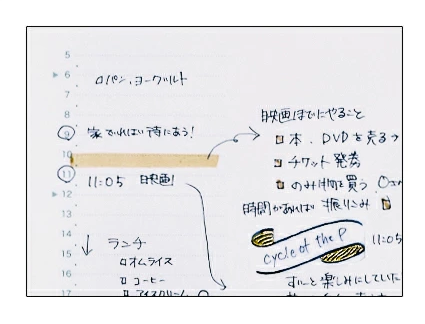 5
6
□パン、ヨーグルト
7
8
9 家でれば待にあう!
10
11 11:05 映画!
12
ランチ
15 □オムライス
16 □コーヒー
17 □アイスクリーム
映画までにやること
□本、DVDを売る→
□チケット発券
□のみ物買う
時間があれば 振りこみ □
cycle of the P
11:05
ずーっと楽しみにしていた